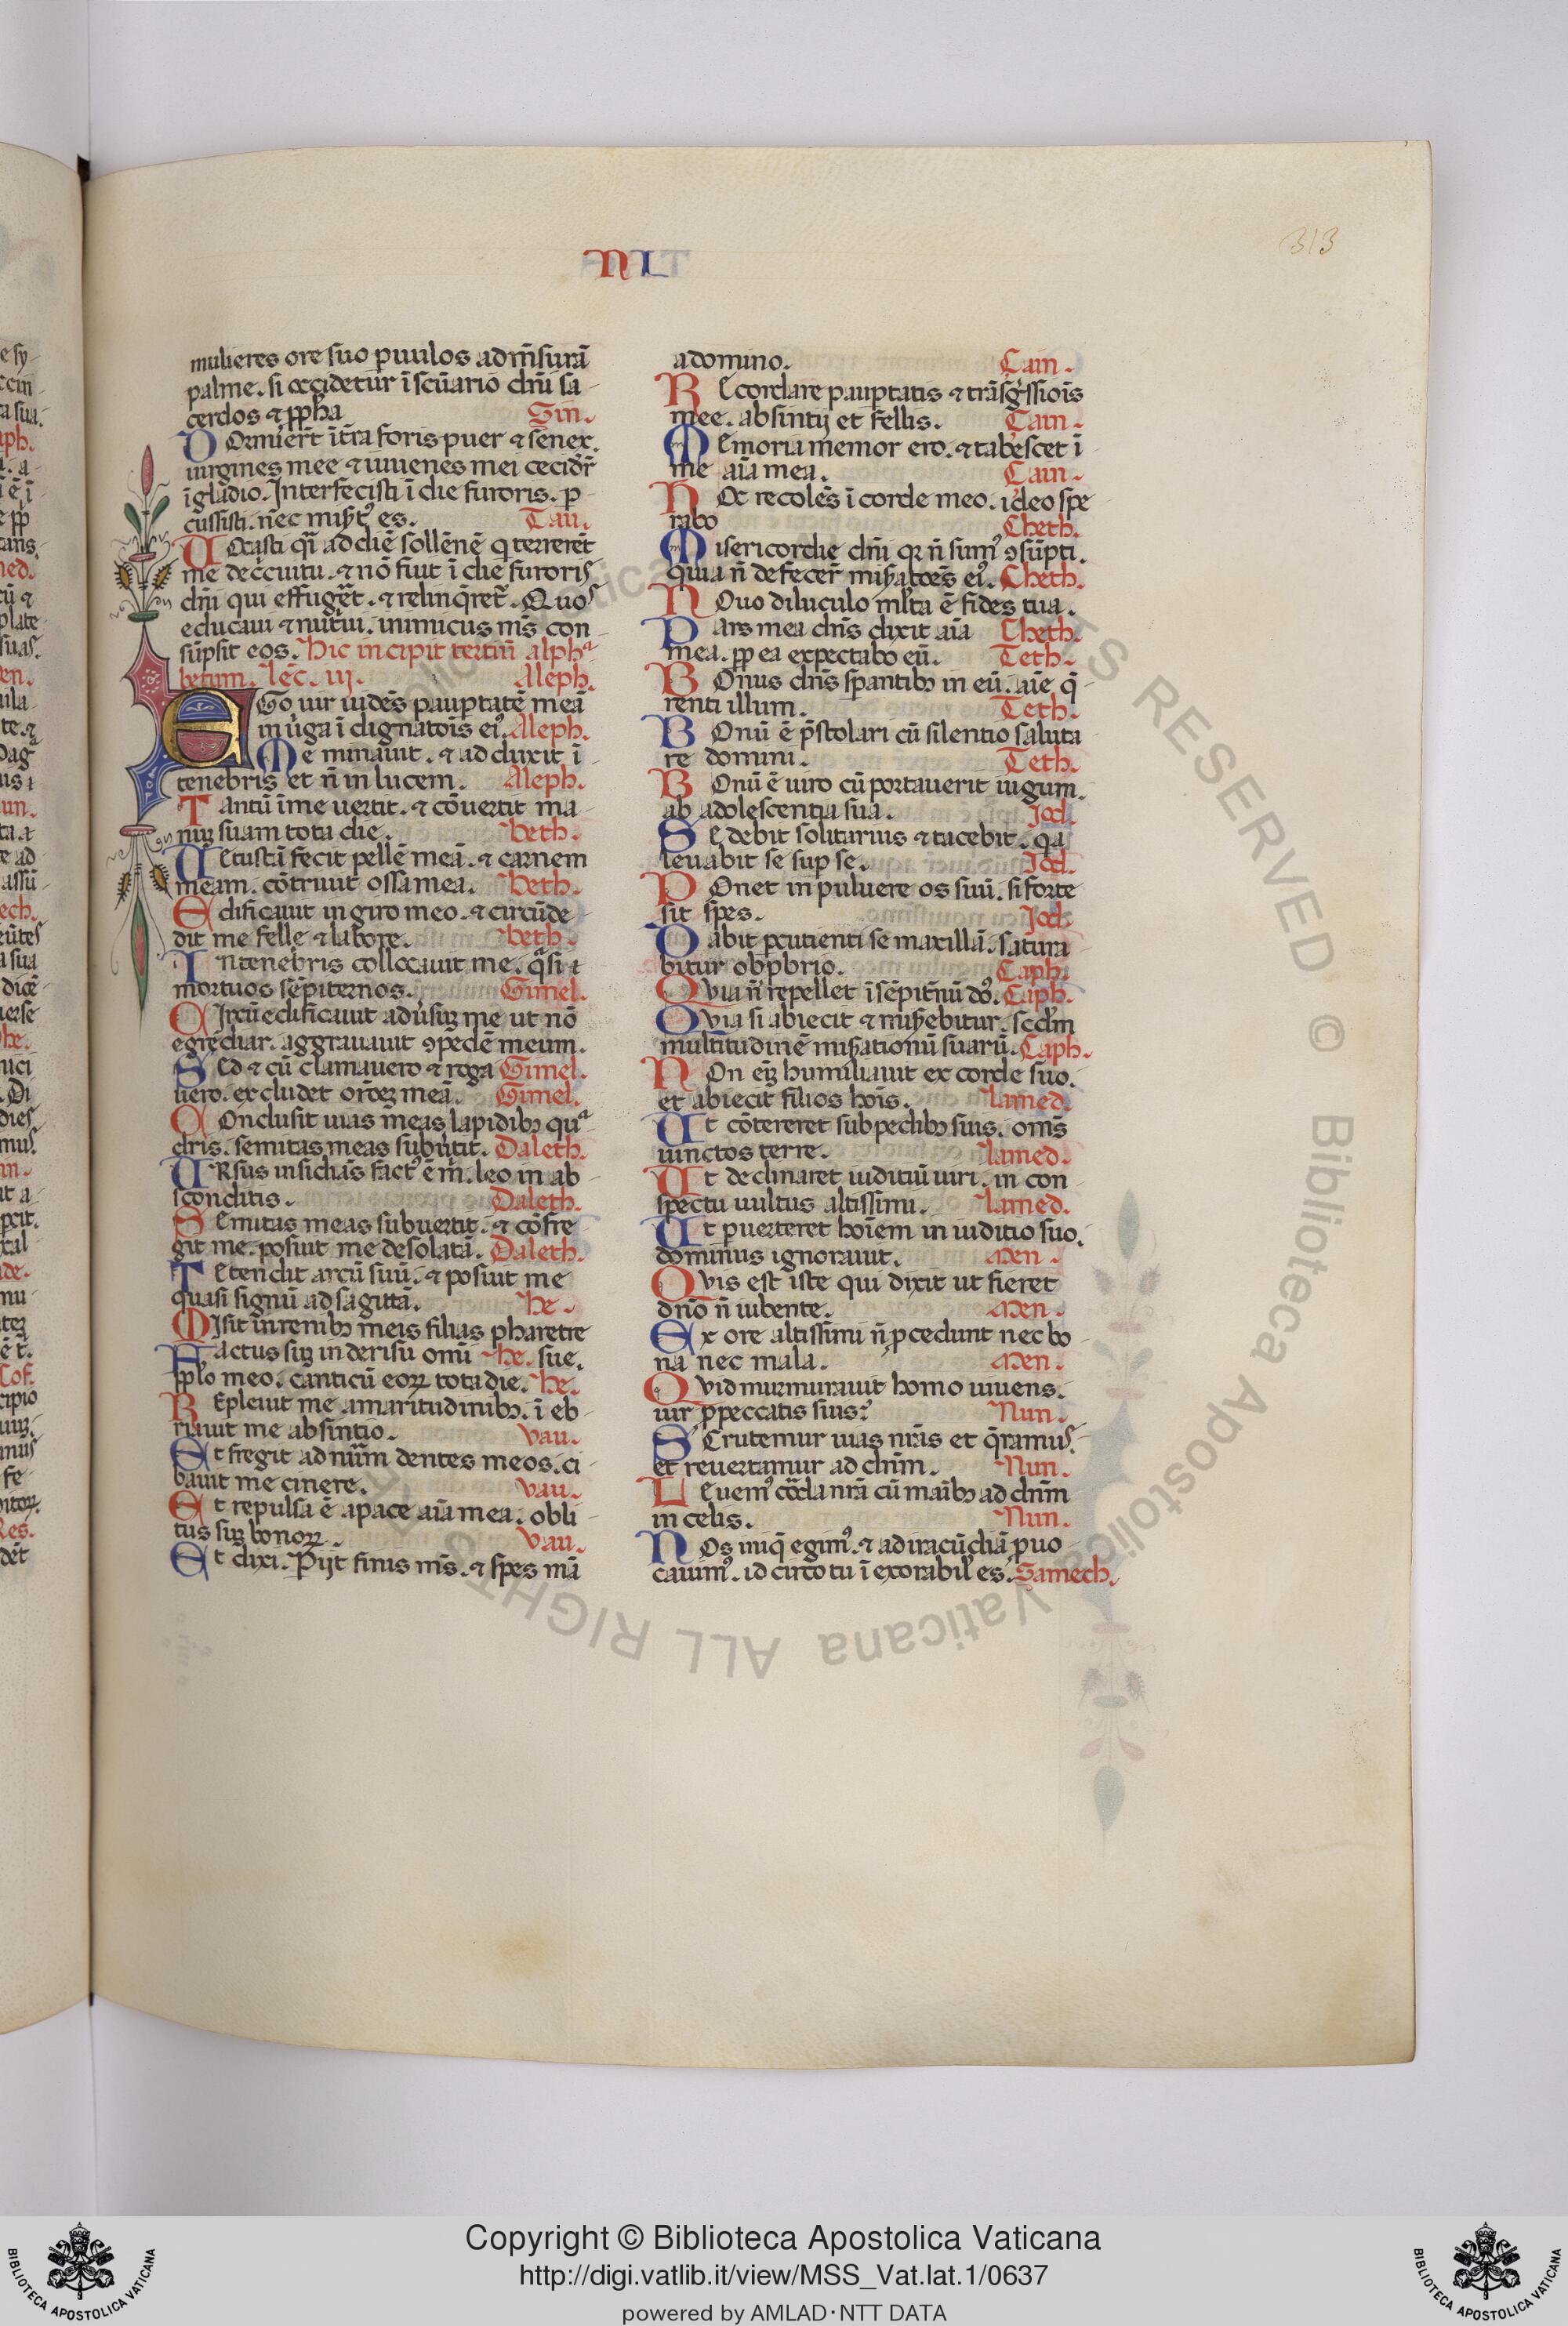 NI
313
mulieres ore suo puulos ad m̄surā
palme. si occidetur ī scūario dn̄i sa-
cerdos ⁊ ꝓph̄a Sin.
DOrmier̄t īt̄ra foris puer ⁊ senex.
uirgines mee ⁊ iuuenes mei cecider̄t
ī gladio. Interfecisti ī die furoris. ꝑ-
cussisti. nec mis̄tꝰ es. Tau.
UOcasti q̄i ad diē sollēnē q terrerēt
me de c̄cuitu. ⁊ nō fuit ī die furoris
dn̄i qui effuger̄et. ⁊ relinq̄ret̄. Quos
educaui ⁊ nut̄ui. inimicus ms̄ con-
sūpsit eos. hic incipit tertiū alpha
betum. lec̄. iij. Aleph.
EGo uir uidēs paupꝑtatē meā
in uirga īdignatōis eiꝰ. Aleph.
Me minauit. ⁊ adduxit ī
tenebris et n̄ in lucem. Aleph.
Tantū ī me uertit. ⁊ cōuertit ma-
nuꝫ suam tota die. beth.
Uetustā fecit pellē meā. ⁊ carnem
meam. cōtriuit ossa mea. beth.
Edificauit in giro meo. ⁊ circūde-
dit me felle ⁊ labore. beth.
In tenebris collocauit me. q̄si
mortuos sēpiternos. Gimel.
CIrcū edificauit aduersuꝫ me ut nō
egrediar. aggrauauit ꝯpedē meum.
SEd ⁊ cū clamauero ⁊ roga Gimel.
uero. excludet or̄oeꝫ meā. Gimel.
COnclusit uias meas lapidibꝫ qua
dris. semitas meas subuertit. Daleth.
URsus insidiās factꝰ ē m̄. leo in ab-
sconditis. Daleth.
SEmitas meas subuertit. ⁊ cōfre
git me. posuit me desolatā. Daleth.
TEtendit arcū suū. ⁊ posuit me
quasi signū ad sagittā. he.
MIsit in renibꝫ meis filias pharetre
Factus suꝫ in derisu omī he. sue.
pp̄lo meo. canticū eoꝝ tota die. he.
REpleuit me amaritudinibꝫ. īeb-
riauit me absintio. vau.
Et fregit ad nūm dentes meos. ci-
bauit me cinere. vau.
Et repulsa ē a pace aīa mea. obli-
tus suꝫ bonoꝝ. vau.
Et dixi. Perijt finis ms̄. ⁊ spes mā
a domino. Cain.
REcordare paupꝑtatis ⁊ trāsgressiois̄
mee. absintij et fellis. Cain.
MEmoria memor ero. ⁊ tabescet ī
me aīa mea. Cain.
HOc recolēs ī corde meo. ideo spe
rabo Cheth.
Misericordie dn̄i qꝛ n̄ sumꝰ ꝯsūpti.
quia n̄ defecer̄t mis̄atōes eiꝰ. Cheth.
NOuo diluculo ml̄ta ē fides tua.
Pars mea dn̄s dixit aīa Cheth.
mea. ꝓpea expectabo eū. Teth.
BOnus dn̄s sꝑantibꝫ in eū. aīe q̄
renti illum. Teth.
BOnū ē p̄stolari cū silentio saluta
re domini. Teth.
BOnū ē uiro cū portauerit iugum.
ab adolescentia sua. Jod.
SEdebit solitarius ⁊ tacebit. qa
leuabit se suꝑ se. Jod.
POnet in puluere os suū. si forte
sit spes. Jod.
Dabit ꝑcutienti se maxillā. satura
bitur obꝓbrio. Caph.
Qvia n̄ repellet ī sēpitn̄ū dōs. Caph.
Qvia si abiecit ⁊ mis̄ebitur. scd̄m
multitudinē mis̄ationū suarū. Caph.
NOn eiꝫ humiliauit ex corde suo.
et abiecit filios hoīs. lamed.
Ut cōtereret sub pedibꝫ suis. oms̄
uinctos terre. lamed.
Ut declinaret iuditiū uiri. in con-
spectu uultus altissimi. lamed.
Ut puerteret hoīem in iuditio suo.
dominus ignorauit. Men.
Qvis est iste qui dixit ut fieret
dn̄o n̄ iubente. Men.
Ex ore altissimi n̄ ꝓcedunt nec bo-
na nec mala. Men.
Qvid murmurauit homo uiuens.
uir ꝓ peccatis suis? Nun.
SCrutemur uias nr̄as et q̄ramus.
et reuertamur ad dn̄m. Nun.
LEuemꝰ corda nr̄a cū maībꝫ ad dn̄m
in celis. Nun.
NOs iniq̄ egimꝰ. ⁊ ad iracūdiā ꝓuo-
cauimꝰ. idcirco tu īexorabilꝭ es. Samech.
Copyright © Biblioteca Apostolica Vaticana
http://digi.vatlib.it/view/MSS_Vat.lat.1/0637
powered by AMLAD·NTT DATA
BIBLIOTECA APOSTOLICA VATICANA
BIBLIOTECA APOSTOLICA VATICANA